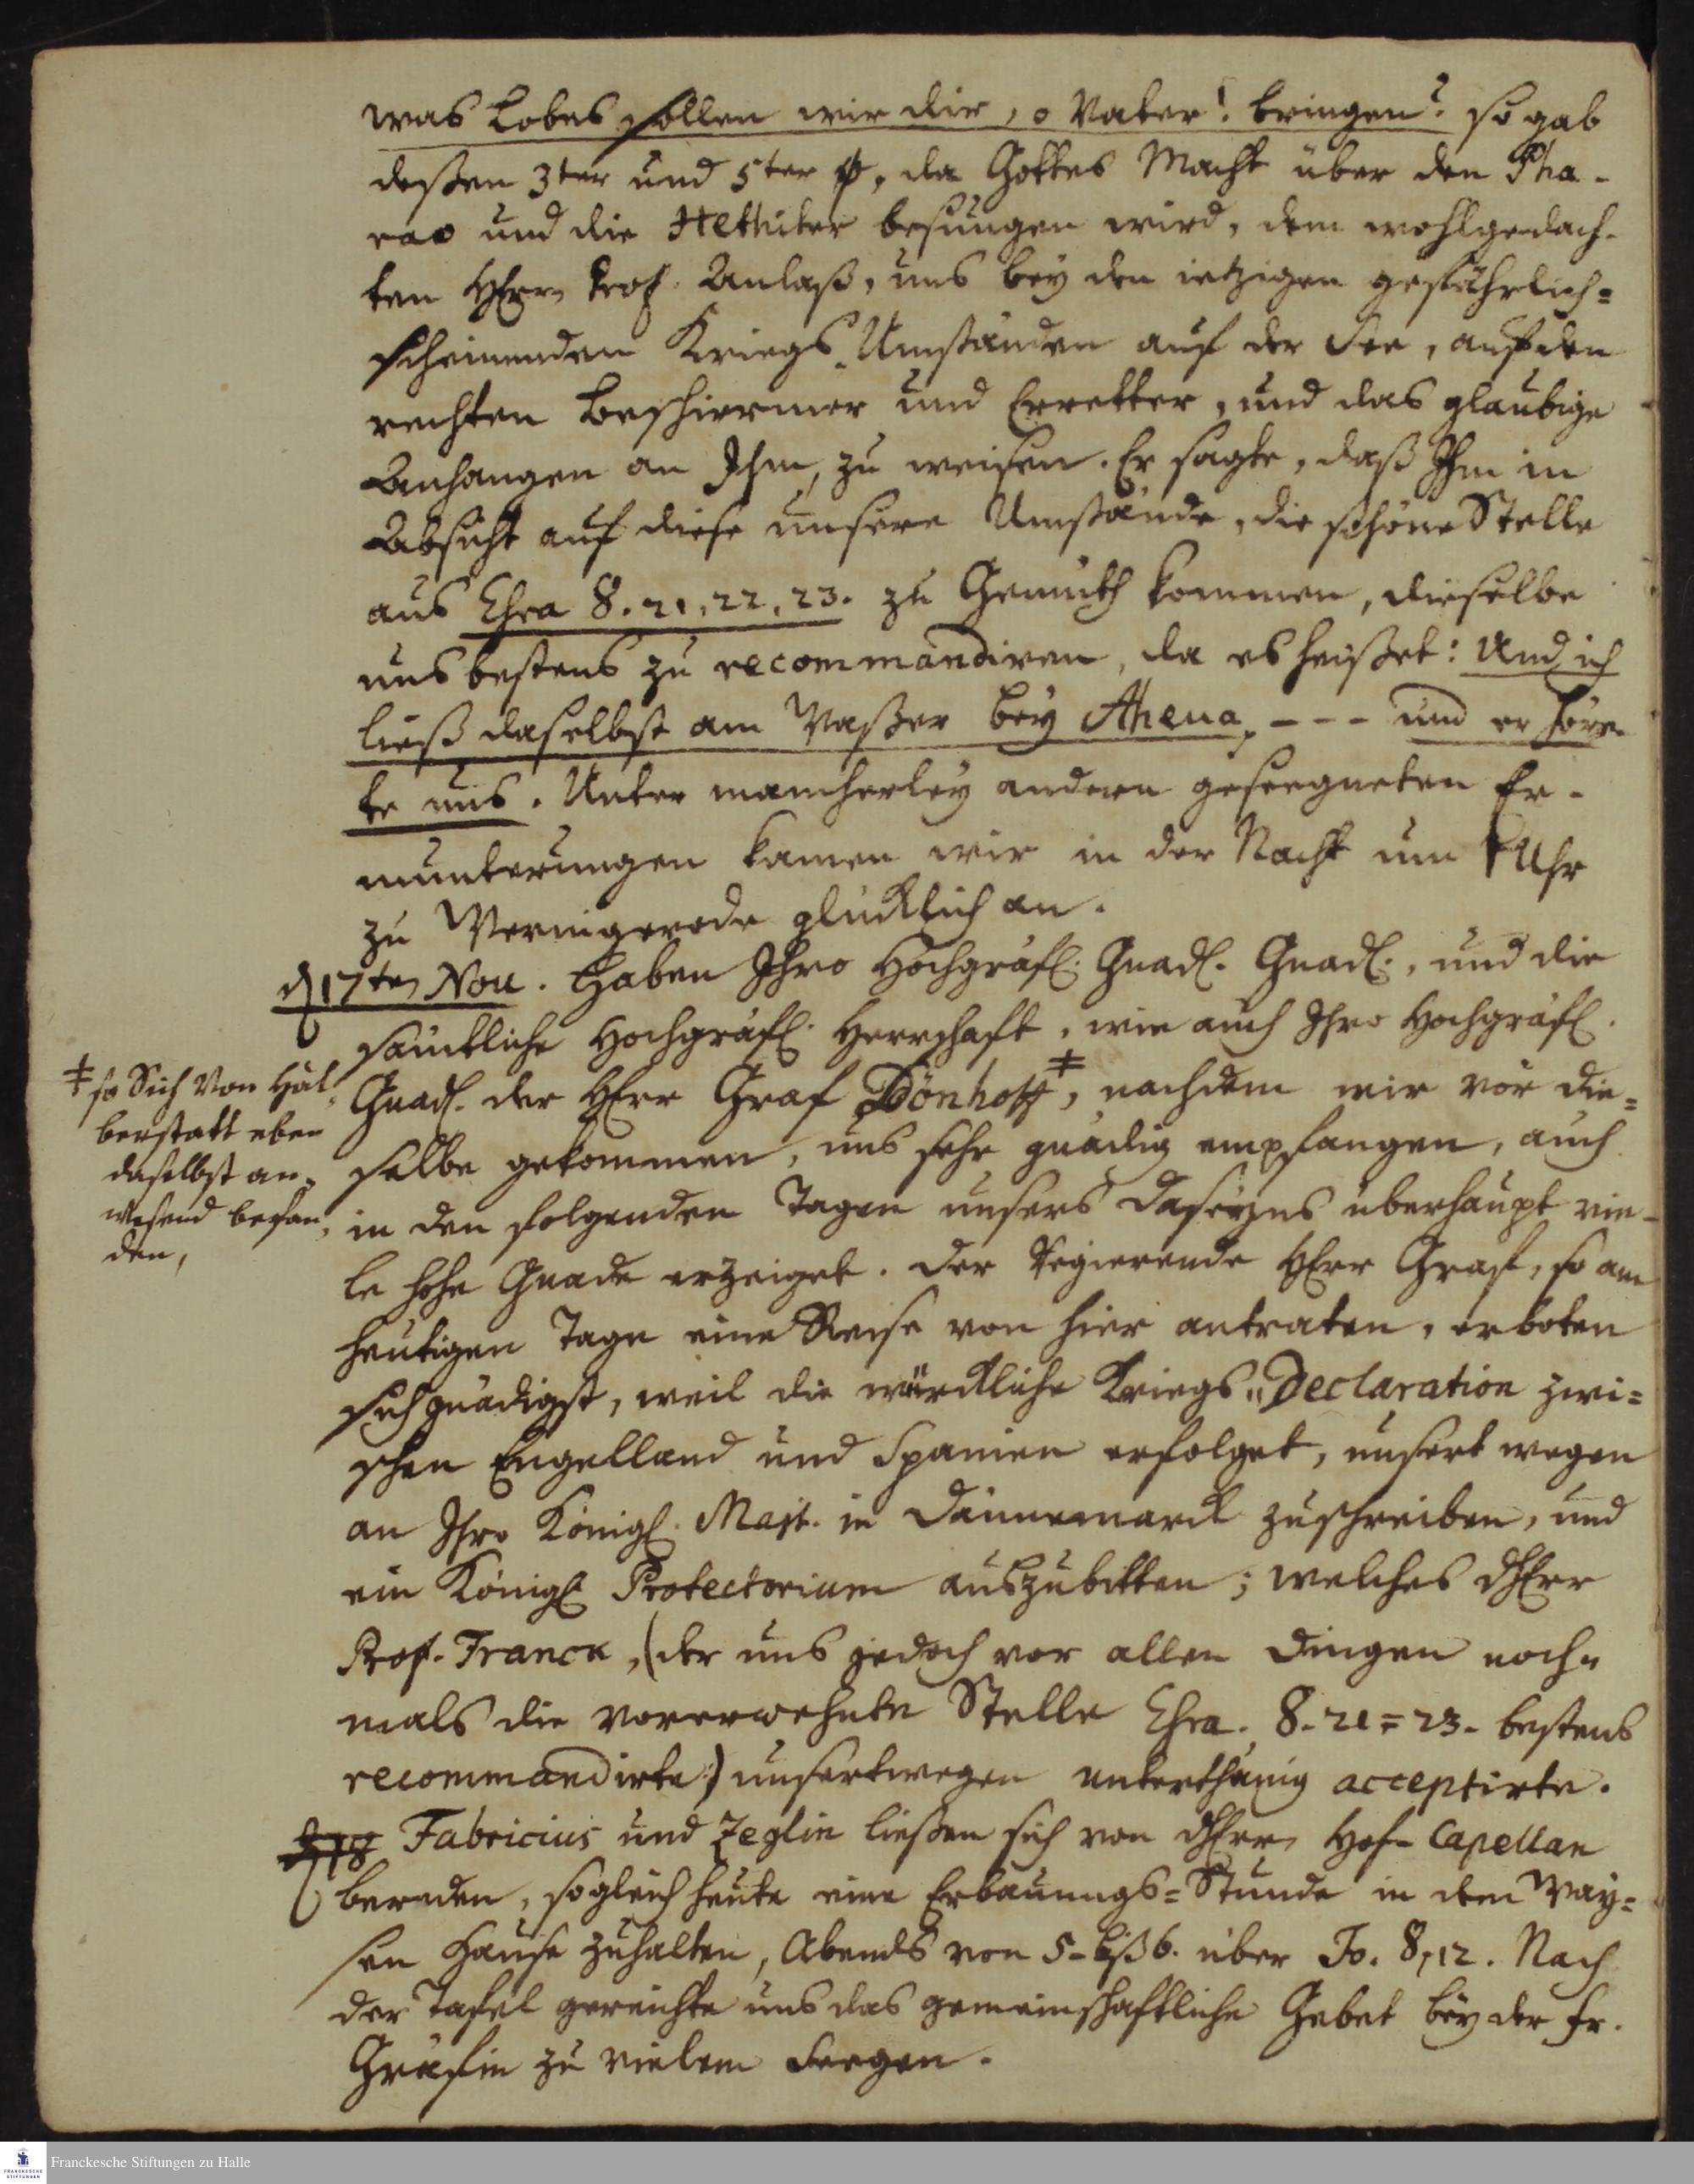 was Lobes sollen wir dir, o Vater! bringen? so gab
deßen 3ter und 5ter ꝟ, da Gottes Macht über den Pha-
rao und die Hethiter besungen wird, dem wohlgedach-
ten HErrn Prof. Anlaß, uns bey den ietzigen gefährlich=
scheinenden Kriegs-Umständen auf der See, auf den
rechten Beschirmer und Erretter, und das glaubige
Anhangen an Ihm, zu weisen. Er sagte, daß Ihm in
Absicht auf diese unsere Umstände, die schöne Stelle
aus Esra 8. 21, 22, 23. zu Gemüth kommen, dieselbe
uns bestens zu recommandiren, da es heißet: Und ich
ließ daselbst am Waßer bey Aheua, - - - und er hör-
te uns. Unter mancherley andern geseegneten Er-
munterungen kamen wir in der Nacht um Uhr
zu Wernigerode glücklich an.
d 17ten Nou. Haben Ihro Hochgräfl. Gnad. Gnad., und die
sämtliche Hochgräfl. Herrschaft, wie auch Ihro Hochgräfl.
Gnad. der HErr Graf Dönhoff ǂ, nachdem wir vor die=
selbe gekommen, uns sehr gnädig empfangen, auch
in den folgenden Tagen unsers Daseyns überhaupt vie-
le hohe Gnade erzeiget. Der Regierende HErr Graf, so am
heutigen Tage eine Reise von hier antraten, erboten
sich gnädigst, weil die würckliche Kriegs-Declaration zwi=
schen Engelland und Spanien erfolget, unsert wegen
an Ihro Königl. Majt. in Dännemarck zuschreiben, und
ein Königl Protectorium auszubitten; welches HErr
Prof. Franck, (der uns jedoch vor allen Dingen noch-
mals die vorerwehnte Stelle Esra. 8. 21=23. bestens
recommandirte) unsertwegen unterthänig acceptirte.
d 18 Fabricius und Zeglin ließen sich von HErrn Hof-Capellan
bereden, sogleich heute eine Erbauungs=Stunde in dem Way=
sen Hause zuhalten, Abends von 5-biß 6. über Jo. 8, 12. Nach
der Tafel gereichte uns das gemeinschaftliche Gebet bey der Fr.
Gräfin zu vielem Seegen.
ǂ so Sich von Hal-
berstatt eben
daselbst an-
wesend befan-
den,
Franckesche Stiftungen zu Halle
FRANCKESCHE
STIFTUNGEN